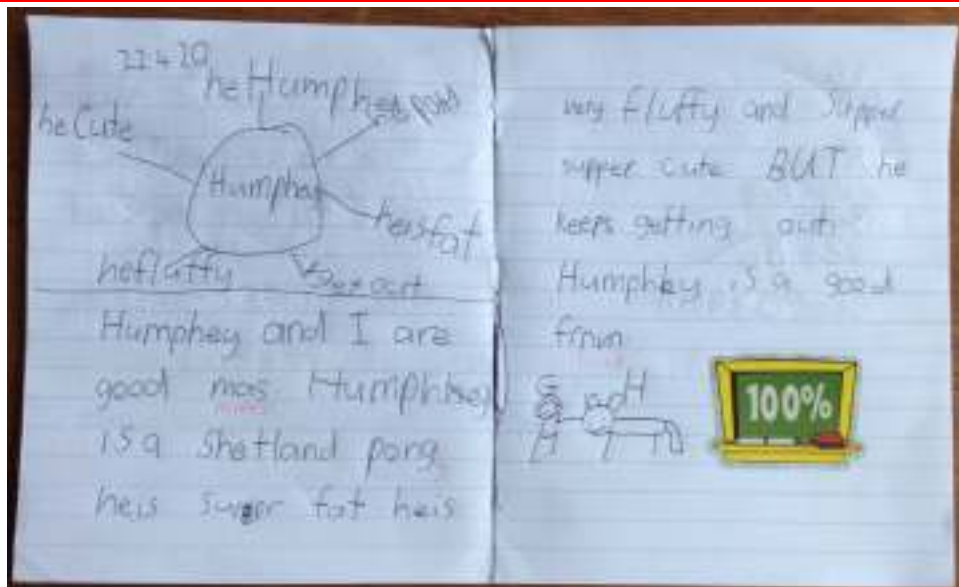 22.4.20
he Humphey
he Cute
Humphey
he is fat
he fluffy
Humphey and I are
good mas Humphrey
is a Shetland pony
he is super fat he is
very Fluffy and Supper
supper cute BUT he
keeps getting out
Humphey is a good
H
100%